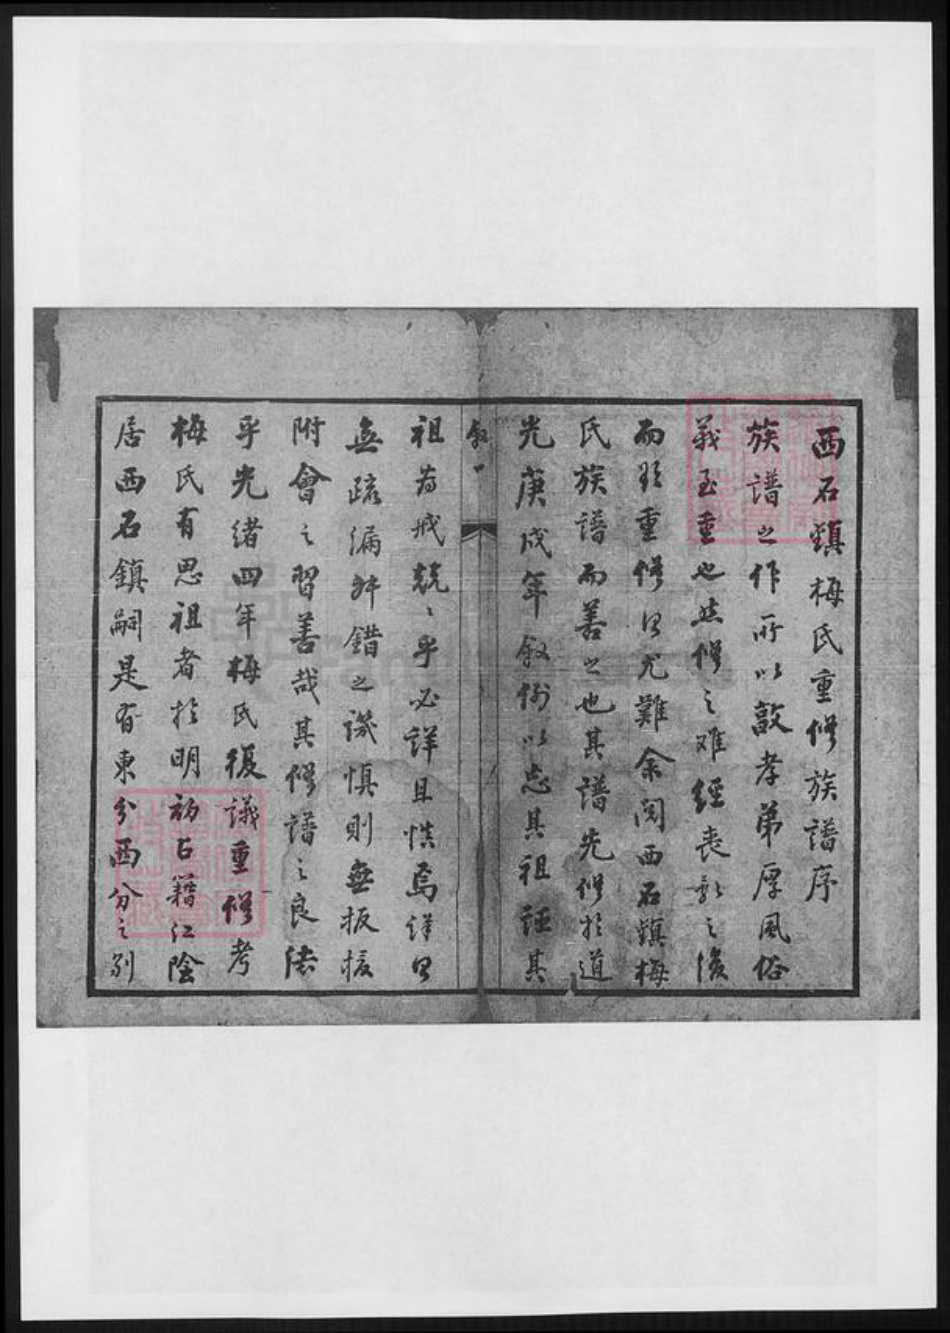 西石鎮梅氏重修族譜序
族譜之作所以敦孝弟厚風俗
義至重也然修之难經喪亂之後
而欲重修則尤難余閱西石鎮梅
氏族譜而善之也其譜先修於道
光庚戌年叙例以忘其祖誣其
叙 一
祖為戒兢〻乎必詳且慎焉詳則
無疏漏舛錯之譏慎則無扳援
附會之習善哉其修譜之良法
乎光緒四年梅氏復議重修考
梅氏有思祖者於明初占籍江陰
居西石鎮嗣是有東分西分之别